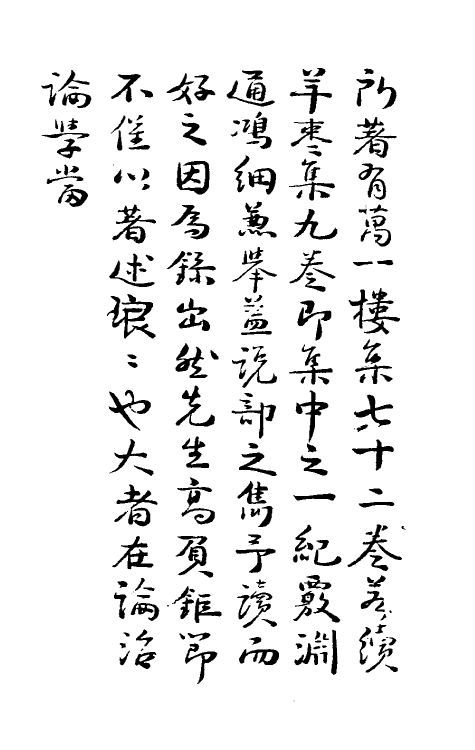 所著有萬一樓集六十二卷若續
羊棗集九卷即集中之一紀覈淵
通鴻細兼舉蓋說部之雋予讀而
好之因為錄出然先生高頁鉅節
不僅以著述琅〻也大者在論治
論學當